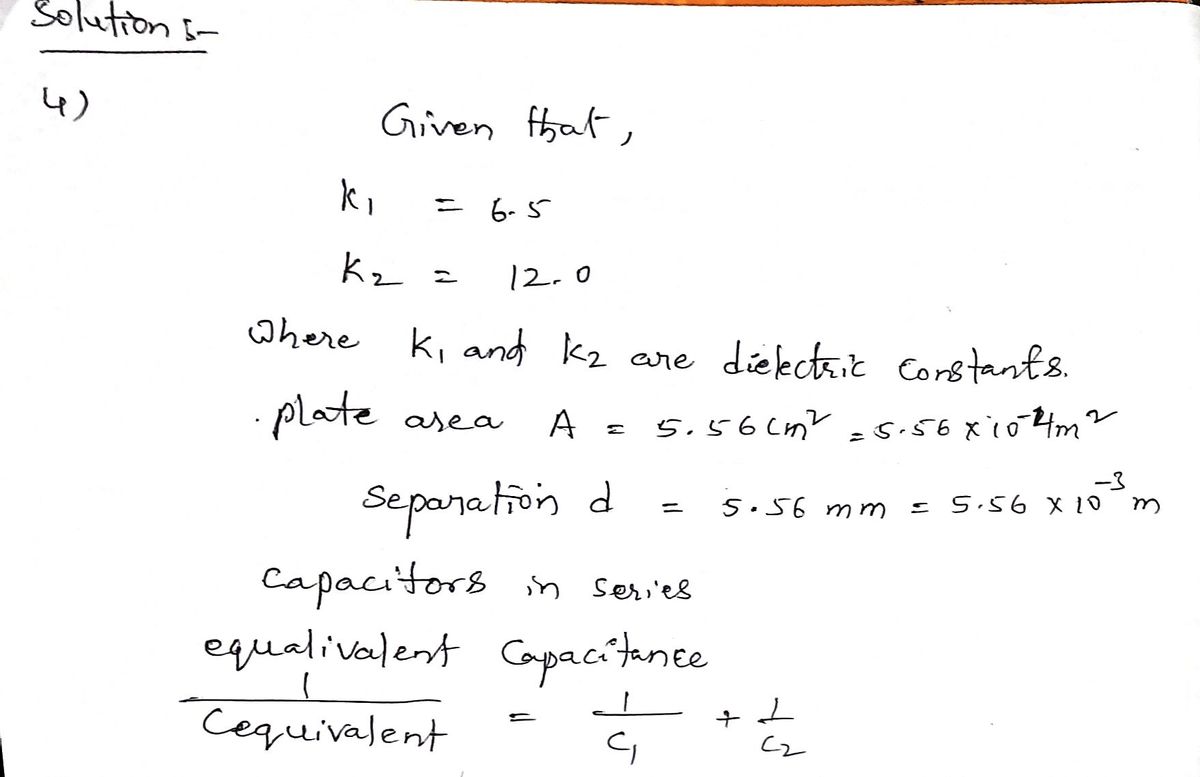 Solution :-
4)
Given that,
K1 = 6.5
K2 = 12.0
Where K1 and K2 are dielectric constants.
. plate area A = 5.56 cm² = 5.56 x 10⁻⁴ m²
Separation d = 5.56 mm = 5.56 x 10⁻³ m
Capacitors in series
equalivalent Capacitance
1/Cequivalent = 1/C1 + 1/C2